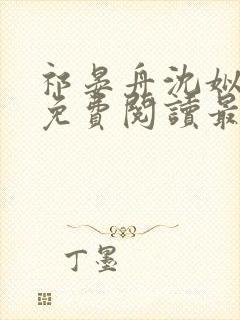 祁晏舟沈姒
免費閱讀最
丁墨